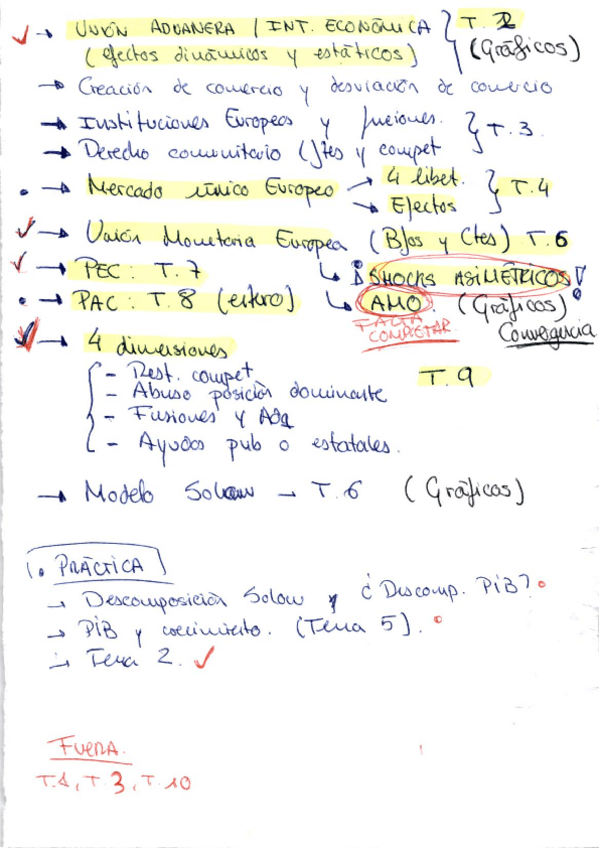 → UNIÓN ADUANERA / INT. ECONÓMICA } T. 2
(efectos dinámicos y estáticos) (Gráficos)
→ Creación de comercio y desviación de comercio
→ Instituciones Europeas y funciones. } T. 3.
→ Derecho comunitario (ftes y compet
• → Mercado único Europeo → 4 libet. } T. 4
→ Efectos
→ Unión Monetaria Europea (Bfos y Ctes) T. 6
→ PEC: T. 7 ¡SHOCKS ASIMÉTRICOS!
• → PAC: T. 8 (entero) AMO. (Gráficos)
FALTA COMPLETAR Convergencia
→ 4 dimensiones
- Rest. compet T. 9
- Abuso posición dominante
- Fusiones y Adq
- Ayudas pub o estatales.
→ Modelo Solow - T. 6 (Gráficos)
• PRÁCTICA
→ Descomposición Solow y ¿Descomp. PIB?
→ PIB y crecimiento. (Tema 5).
→ Tema 2. ✓
FUERA.
T.1, T.3, T.10